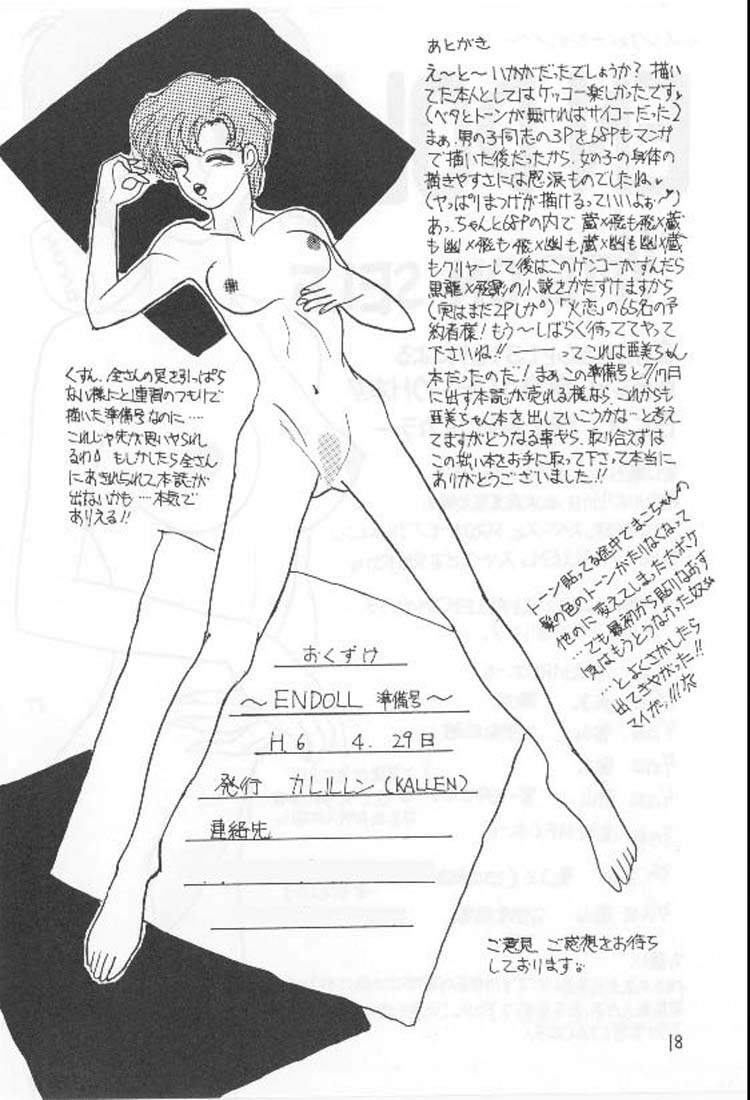 あとがき
え〜と〜いかがだったでしょうか？描い
てた本人としてはケッコー楽しかったです。
(ベタとトーンが無ければサイコーだった)
まぁ、男の子同志の3Pを68Pもマンガ
で描いた後だったから、女の子の身体の
描きやすさには感涙ものでしたね。
(ヤッぱりまつげが描けるっていいよぉ〜♡)
あっちゃんと68Pの内で蔵×飛も飛×蔵
も幽×飛も飛×幽も、蔵×幽も幽×蔵
もクリヤーして後はこのゲンコーがすんだら
黒龍×飛影の小説をかたずけますから
(実はまだ2Pしか)「火恋」の65名の予
約者様！もう〜しばらく待っててやって
下さいね!!
ってこれは亜美ちゃん
本だったのだ！まぁこの準備号と7/17日
に出す本誌が売れる様なら、これからも
亜美ちゃん本を出していこうかな…と考え
てますがどうなる事やら、取り合えずは
この拙い本をお手に取って下さって本当に
ありがとうございました!!
トーン貼ってる途中でまこちゃんの
髪の色のトーンがたりなくなって
他のに変えてしまった大ボケ
…でも最初から貼りなおす
気はもうとうなかった奴
…とよくさがしたら
出てきやがった!!
マイガッ!!!
くすん、全さんの足を引っぱら
ない様にと練習のつもりで
描いた準備号なのに……
これじゃ先が思いやられ
るわ もしかしたら全さん
にあきれられて本誌が
出ないかも…本気で
ありえる!!
おくずけ
〜ENDOLL 準備号〜
H.6 4.29日
発行 カレルレン(KALLEN)
連絡先
ご意見、ご感想をお待ち
しております。
18